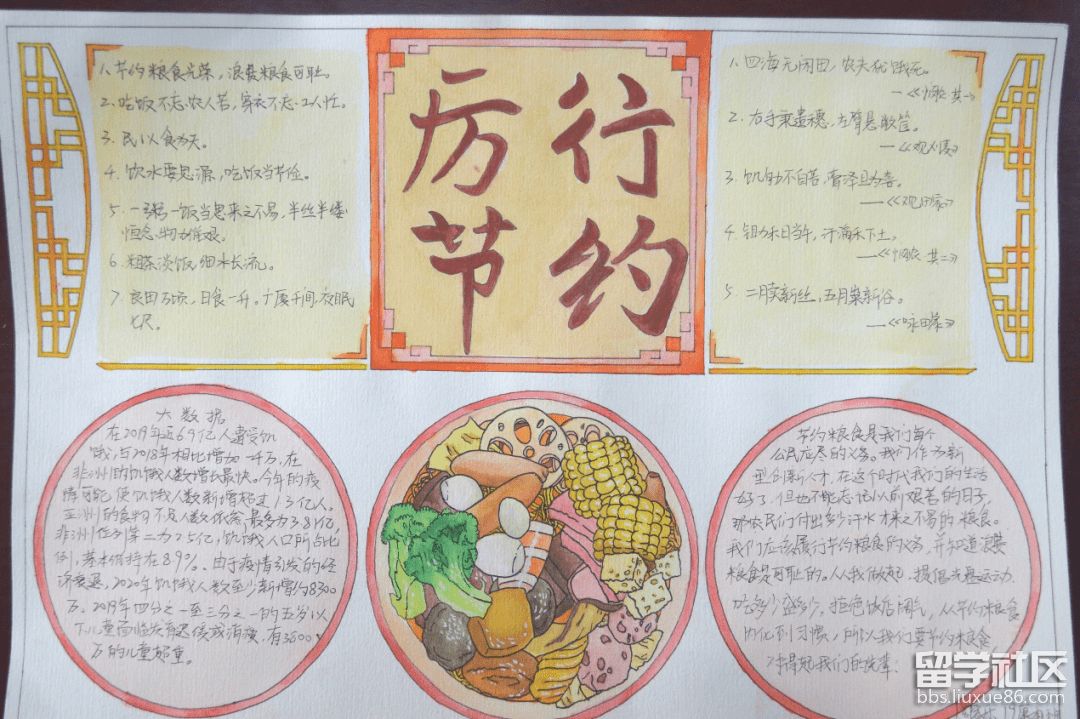 厉行
节约
1、节约粮食光荣，浪费粮食可耻。
2、吃饭不忘农人苦，穿衣不忘工人忙。
3、民以食为天。
4、饮水要思源，吃饭当节俭。
5、一粥一饭当思来之不易，半丝半缕
恒念物力维艰。
6、粗茶淡饭，细水长流。
7、良田万顷，日食一升。广厦千间，夜眠
七尺。
1、四海无闲田，农夫犹饿死。
—《悯农 其一》
2、右手秉遗穗，左臂悬敝筐。
—《观刈麦》
3、饥劬不自苦，膏泽且为喜。
—《观田家》
4、锄禾日当午，汗滴禾下土。
—《悯农 其二》
5、二月卖新丝，五月粜新谷。
—《咏田家》
大数据
在2019年近6.9亿人遭受饥
饿，与2018年相比增加一千万，在
非洲的饥饿人数增长最快。今年的疫
情可能使饥饿人数新增超过1.3亿人。
亚洲的食物不足人数依然最多为3.81亿，
非洲位列第二为2.5亿，饥饿人口所占比
例，基本维持在8.9%。由于疫情引发的经
济衰退，2020年饥饿人数至少新增约8300
万。2019年四分之一至三分之一的五岁以
下儿童面临发育迟缓或消瘦，有3800
万的儿童超重。
节约粮食是我们每个
公民应尽的义务。我们作为新
型创新人才，在这个时代我们的生活
好了，但也不能忘记以前艰苦的日子，
那农民们付出多少汗水才来之不易的粮食。
我们应该履行节约粮食的义务，并知道浪费
粮食是可耻的。从我做起，提倡光盘运动，
吃多少盛多少，拒绝饭店阔气，从节约粮食
内化到习惯，所以我们要节约粮食
对得起我们的先辈！
留学社区
bbs.liuxue86.com